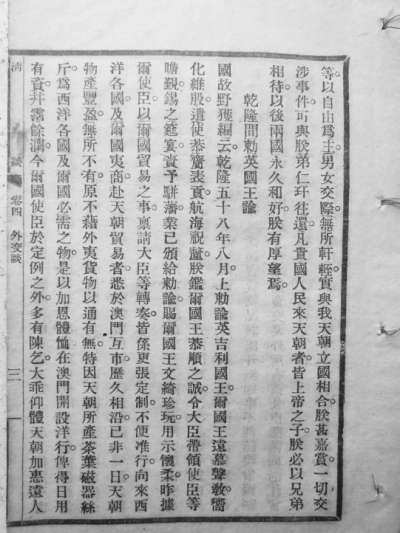 等以自由爲主。男女交際。無所軒輊。實與我天朝立國相合。朕甚嘉賞。一切交
涉事件。可與朕弟仁玕往還。凡貴國人民來天朝者。皆上帝之子。朕必以兄弟
相待。以後兩國永久和好。朕有厚望焉。
乾隆間勅英國王諭
國故野獲編云。乾隆五十八年八月上勅諭英吉利國王。爾國王遠慕聲敎。嚮
化維殷。遣使恭賚表貢。航海祝釐。朕鑑爾國王恭順之誠。令大臣帶領使臣等
瞻覲。錫之筵宴。賚予駢蕃。業已頒給勅諭。賜爾國王文綺珍玩。用示懷柔。昨據
爾使臣以爾國貿易之事。禀請大臣等轉奏。皆係更張定制。不便准行。向來西
洋各國及爾國夷商赴天朝貿易者。悉於澳門互市。歷久相沿。已非一日。天朝
物產豐盈。無所不有。原不藉外夷貨物以通有無。特因天朝所產茶葉磁器絲
斤。爲西洋各國及爾國必需之物。是以加恩體恤。在澳門開設洋行。俾得日用
有資。并霑餘潤。今爾國使臣於定例之外。多有陳乞。大乖仰體天朝加惠遠人
清
談
卷四
外交談